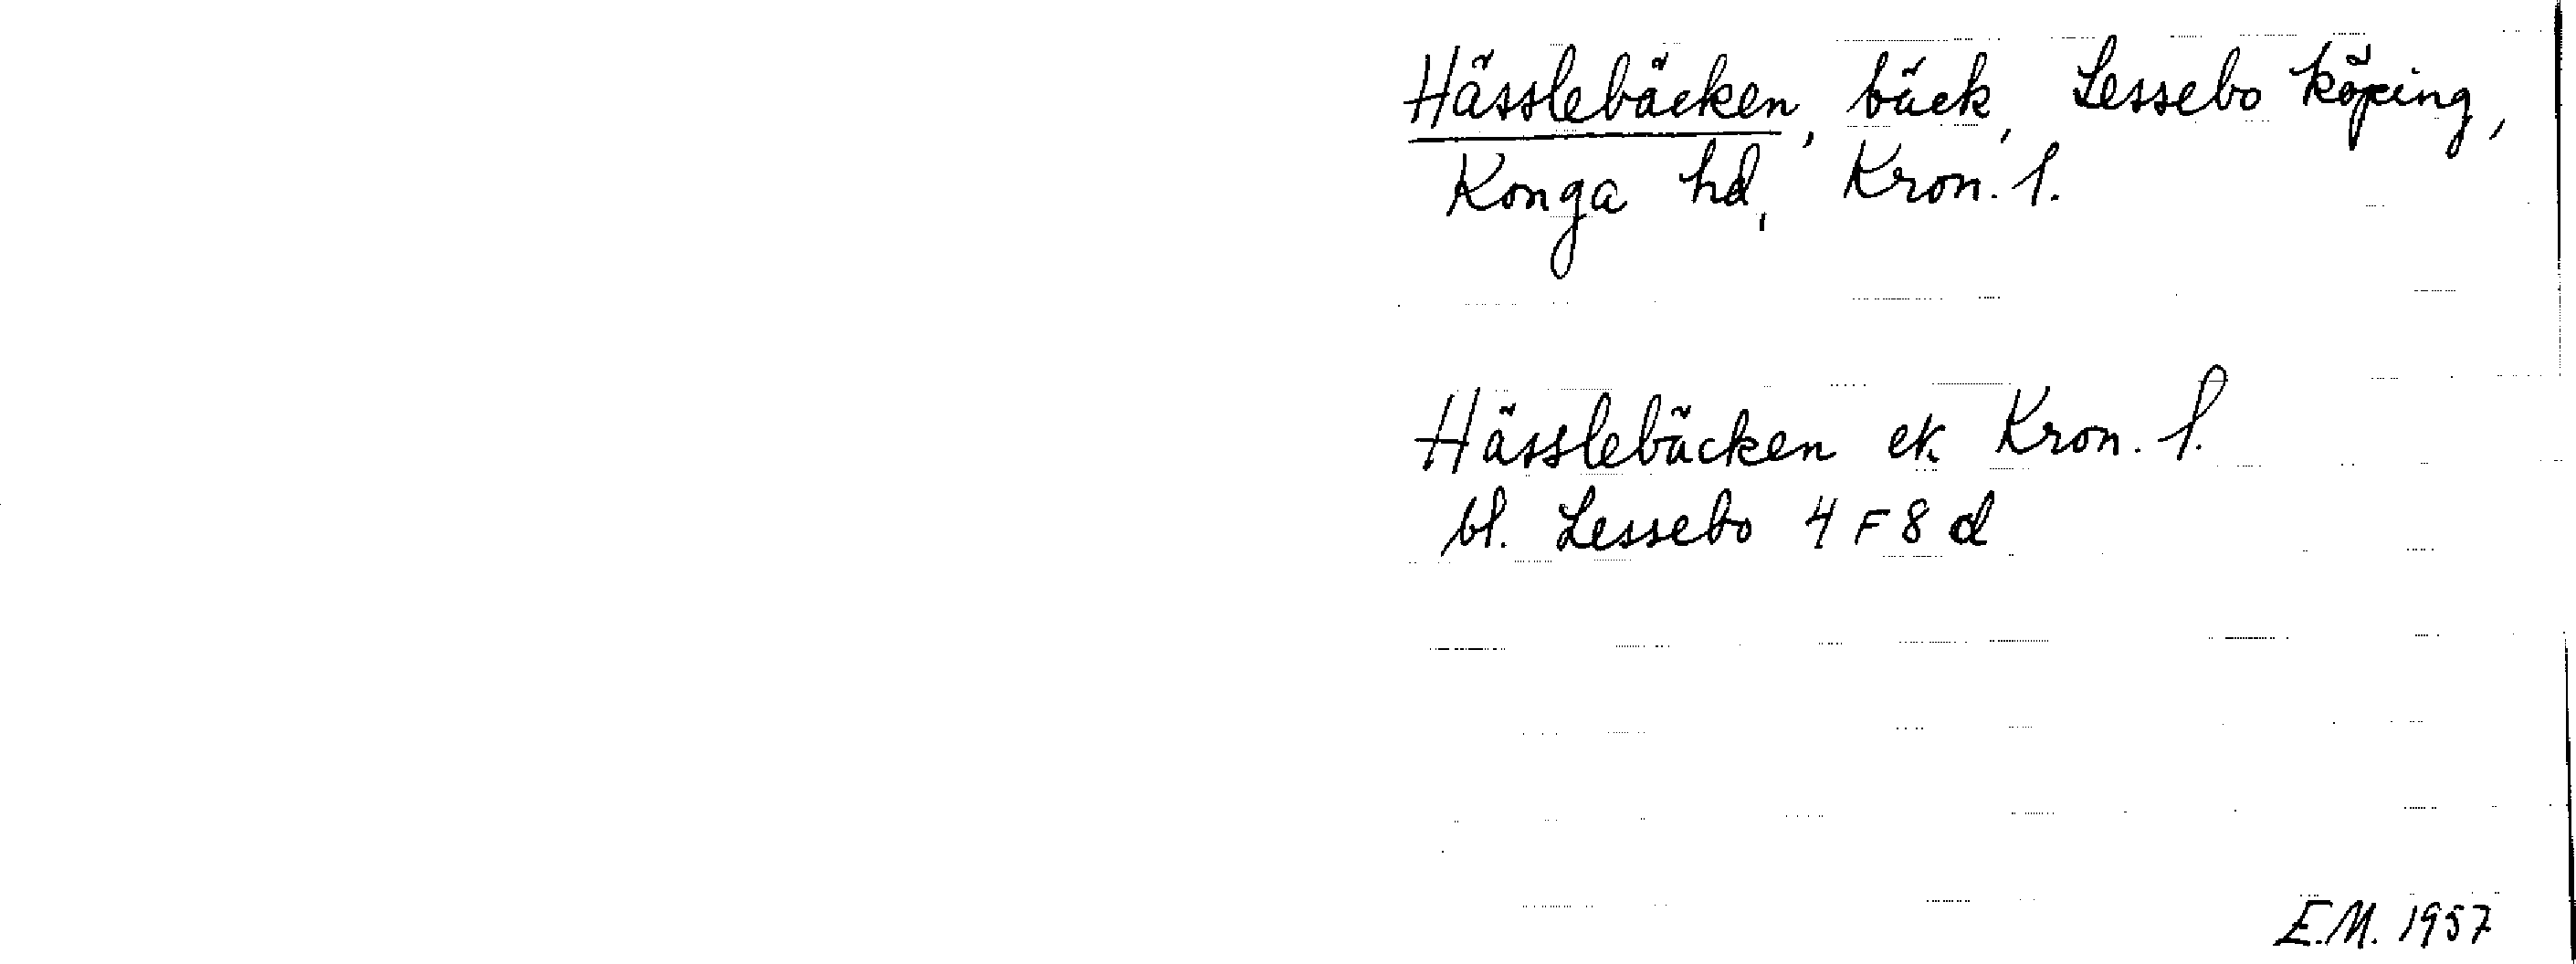 Hässlebäcken, bäck, Lessebo köping,
Konga hd, Kron. l.
Hässlebäcken ek. Kron. l.
bl. Lessebo 4 F 8 d
E.M. 1957